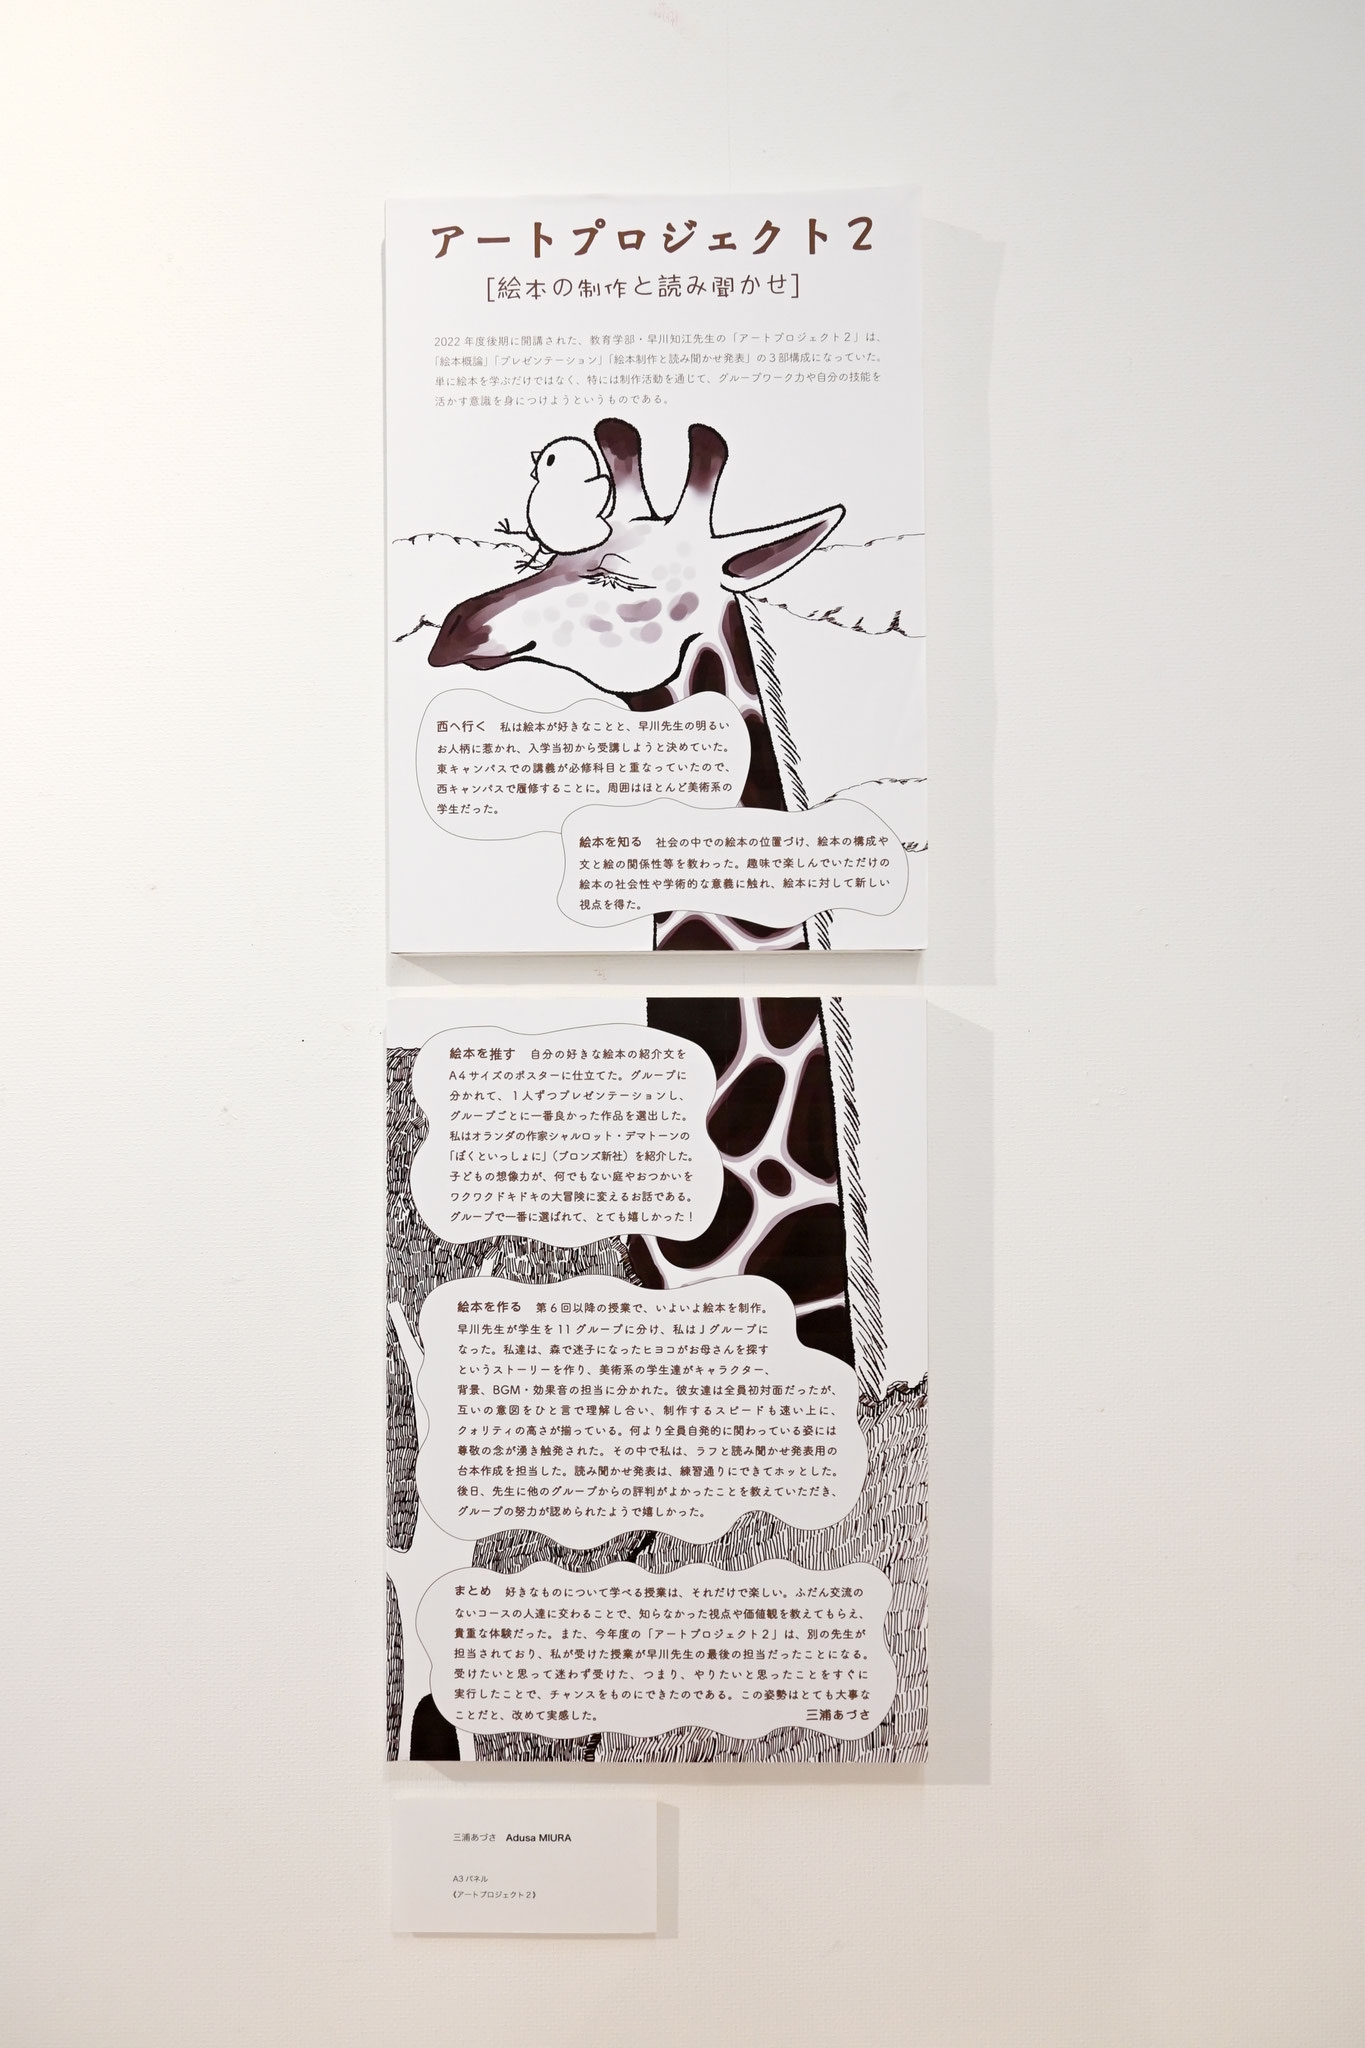 アートプロジェクト2
[絵本の制作と読み聞かせ]
2022年度後期に開講された、教育学部・早川知江先生の「アートプロジェクト2」は、
「絵本概論」「プレゼンテーション」「絵本制作と読み聞かせ発表」の3部構成になっていた。
単に絵本を学ぶだけではなく、特には制作活動を通じて、グループワーク力や自分の技能を
活かす意識を身につけようというものである。
西へ行く 私は絵本が好きなことと、早川先生の明るい
お人柄に惹かれ、入学当初から受講しようと決めていた。
東キャンパスでの講義が必修科目と重なっていたので、
西キャンパスで履修することに。周囲はほとんど美術系の
学生だった。
絵本を知る 社会の中での絵本の位置づけ、絵本の構成や
文と絵の関係性等を教わった。趣味で楽しんでいただけの
絵本の社会性や学術的な意義に触れ、絵本に対して新しい
視点を得た。
絵本を推す 自分の好きな絵本の紹介文を
A4サイズのポスターに仕立てた。グループに
分かれて、1人ずつプレゼンテーションし、
グループごとに一番良かった作品を選出した。
私はオランダの作家シャルロット・デマトーンの
「ぼくといっしょに」(ブロンズ新社)を紹介した。
子どもの想像力が、何でもない庭やおつかいを
ワクワクドキドキの大冒険に変えるお話である。
グループで一番に選ばれて、とても嬉しかった!
絵本を作る 第6回以降の授業で、いよいよ絵本を制作。
早川先生が学生を11グループに分け、私はJグループに
なった。私達は、森で迷子になったヒヨコがお母さんを探す
というストーリーを作り、美術系の学生達がキャラクター、
背景、BGM・効果音の担当に分かれた。彼女達は全員初対面だったが、
互いの意図をひと言で理解し合い、制作するスピードも速い上に、
クォリティの高さが揃っている。何より全員自発的に関わっている姿には
尊敬の念が湧き触発された。その中で私は、ラフと読み聞かせ発表用の
台本作成を担当した。読み聞かせ発表は、練習通りにできてホッとした。
後日、先生に他のグループからの評判がよかったことを教えていただき、
グループの努力が認められたようで嬉しかった。
まとめ 好きなものについて学べる授業は、それだけで楽しい。ふだん交流の
ないコースの人達に交わることで、知らなかった視点や価値観を教えてもらえ、
貴重な体験だった。また、今年度の「アートプロジェクト2」は、別の先生が
担当されており、私が受けた授業が早川先生の最後の担当だったことになる。
受けたいと思って迷わず受けた、つまり、やりたいと思ったことをすぐに
実行したことで、チャンスをものにできたのである。この姿勢はとても大事な
ことだと、改めて実感した。 三浦あづさ
三浦あづさ Adusa MIURA
A3パネル
《アートプロジェクト2》